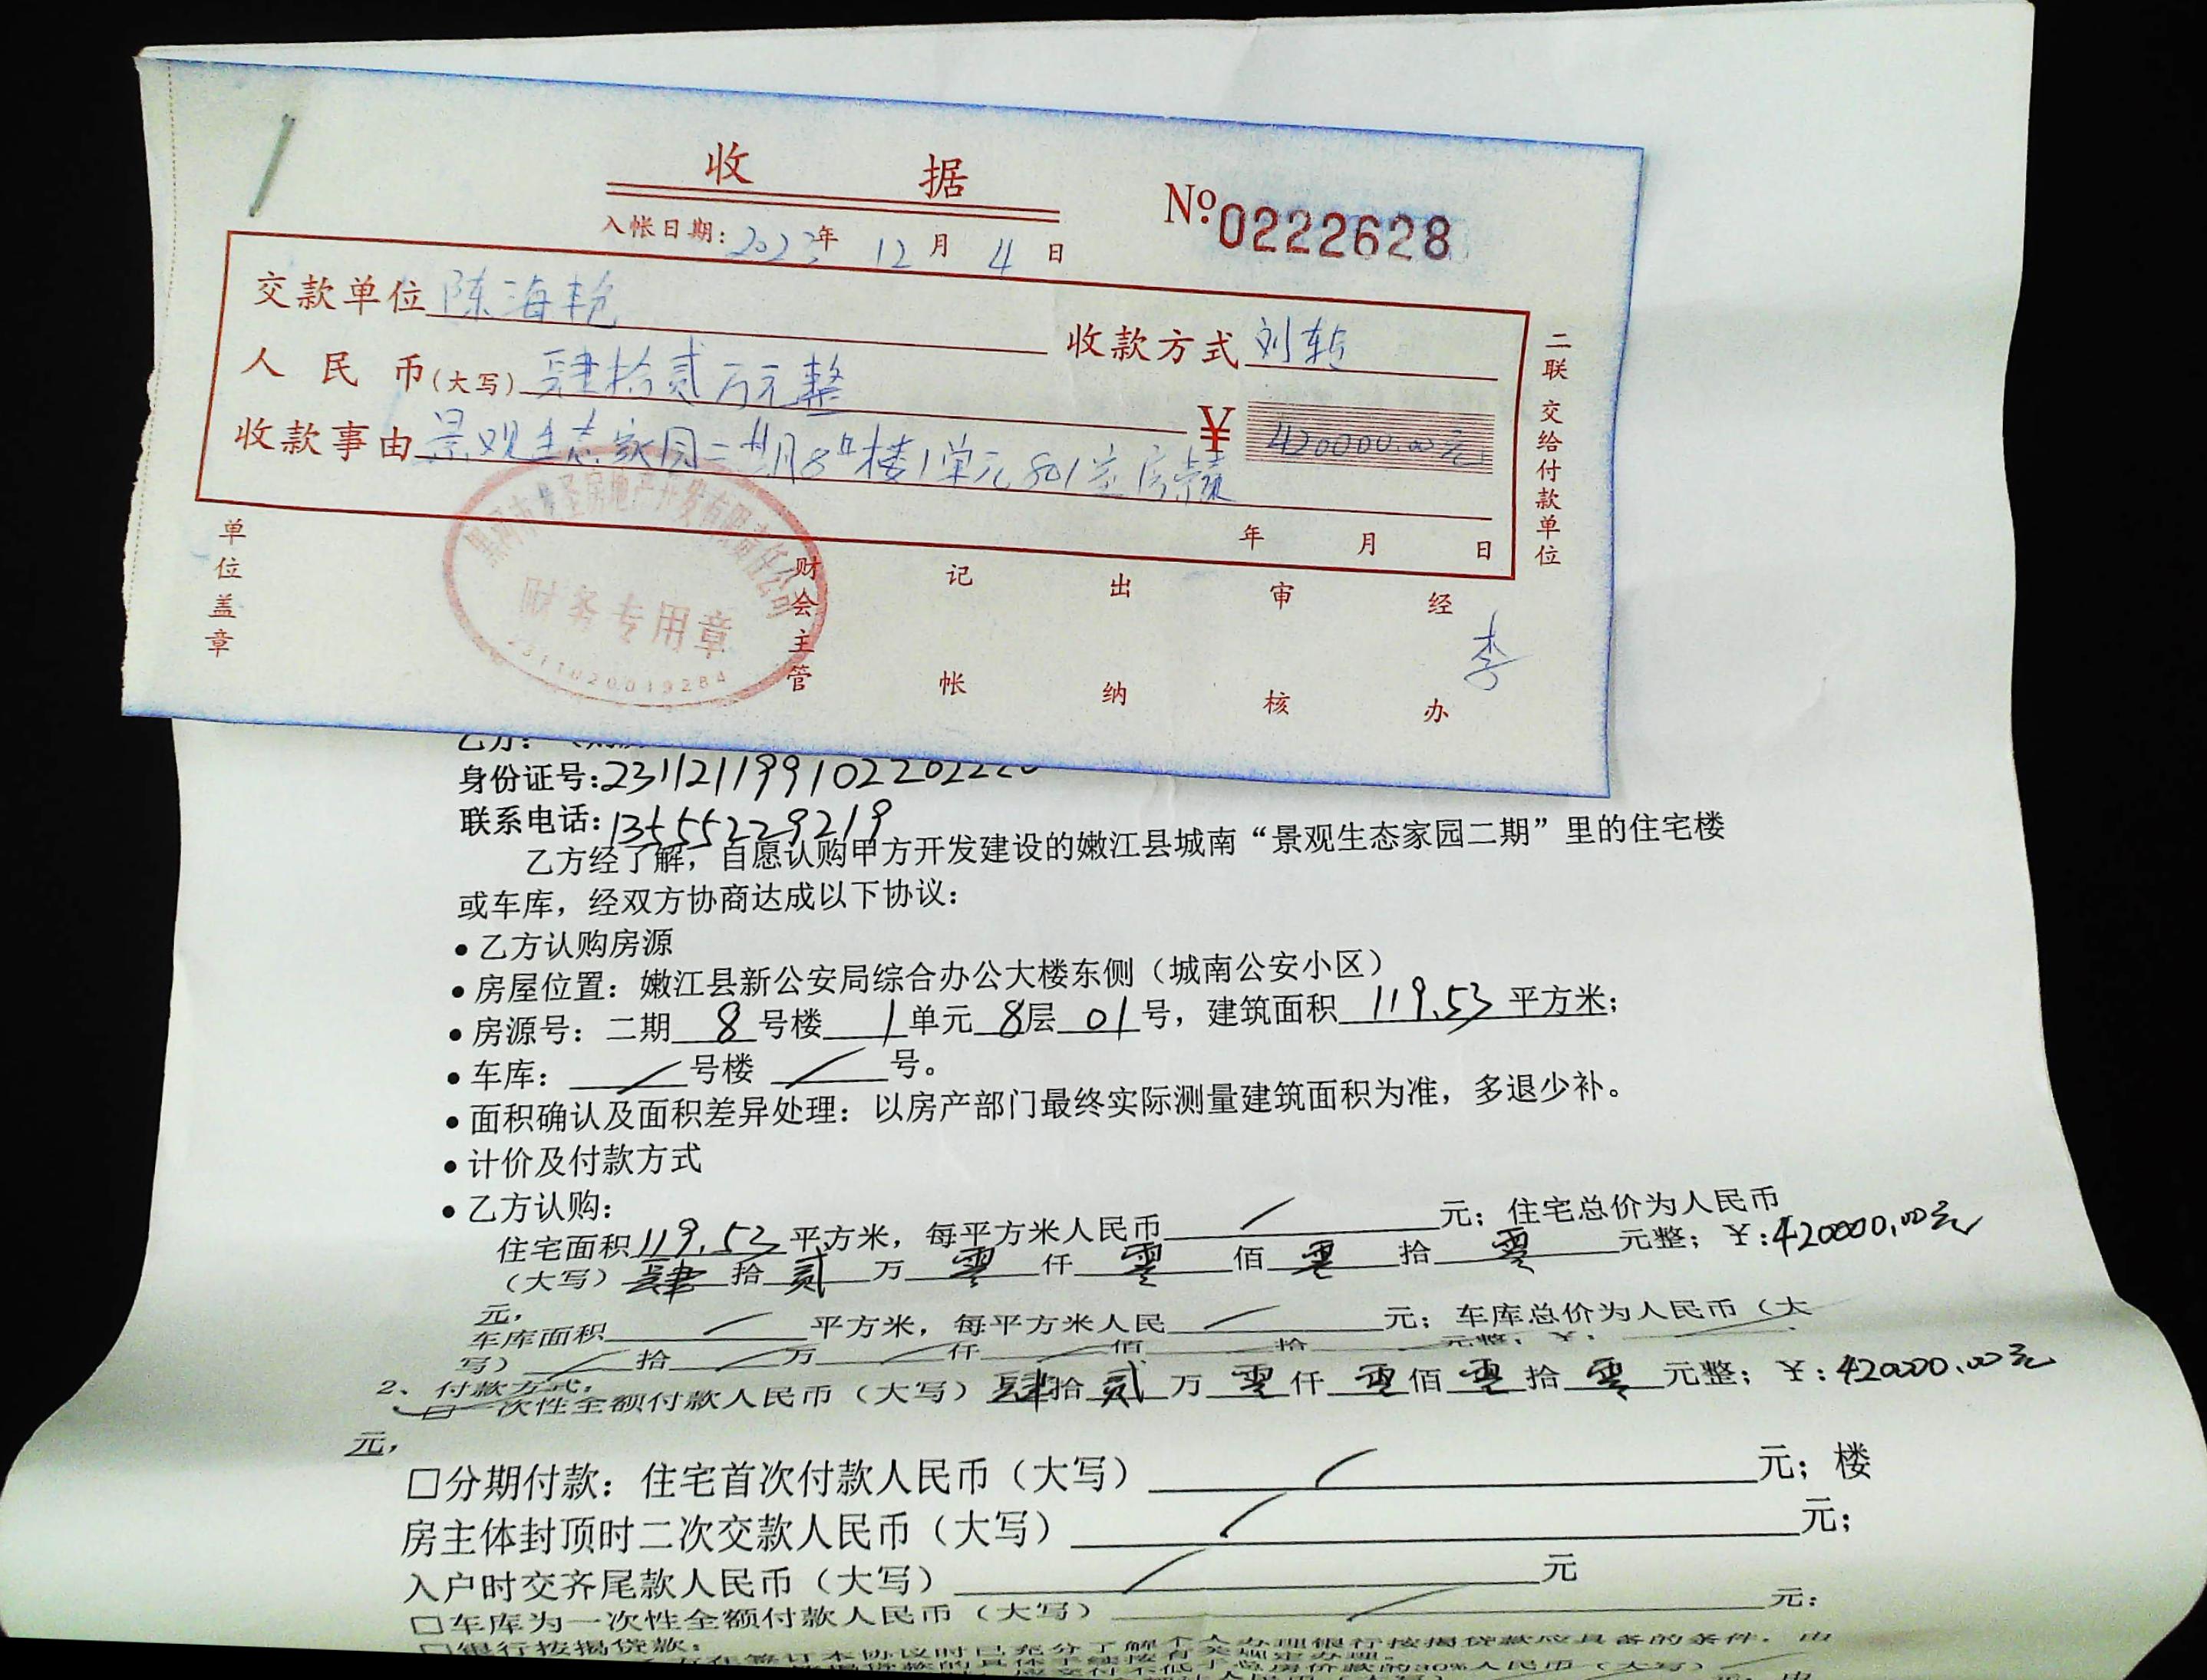 收 据
No.0222628
入帐日期：2023年 12月 4日
交款单位 陈海艳
收款方式 刘转
人民币(大写) 肆拾贰万元整
¥ 420000.00元
收款事由 景观生态家园二期8#楼1单元801室房款
年 月 日
二联 交给付款单位
单位盖章
财会主管 记帐 出纳 审核 经办 李
房地产开发有限责任公司
财务专用章
乙方：
身份证号:231121199102202220
联系电话:13555229219
乙方经了解，自愿认购甲方开发建设的嫩江县城南“景观生态家园二期”里的住宅楼
或车库，经双方协商达成以下协议：
• 乙方认购房源
• 房屋位置：嫩江县新公安局综合办公大楼东侧（城南公安小区）
• 房源号：二期 8 号楼 1 单元 8 层 01 号，建筑面积 119.53 平方米；
• 车库： / 号楼 / 号。
• 面积确认及面积差异处理：以房产部门最终实际测量建筑面积为准，多退少补。
• 计价及付款方式
• 乙方认购：
住宅面积 119.53 平方米，每平方米人民币 / 元；住宅总价为人民币
（大写）肆 拾 贰 万 零 仟 零 佰 零 拾 零 元整；￥:420000.00元
元，
车库面积 / 平方米，每平方米人民 / 元；车库总价为人民币（大
写） / 拾 / 万 / 仟 / 佰 / 拾 元整；￥：
2、付款方式：
□一次性全额付款人民币（大写）肆拾 贰 万 零 仟 零 佰 零 拾 零 元整；￥:420000.00元
元，
□分期付款：住宅首次付款人民币（大写） / 元；楼
房主体封顶时二次交款人民币（大写） / 元；
入户时交齐尾款人民币（大写） / 元
□车库为一次性全额付款人民币（大写） / 元；
□银行按揭贷款：